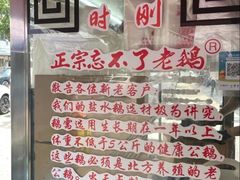 时刚
正宗忘不了老鹅®
敬告各位新老客户
我们的盐水鹅选材极为讲究,
鹅需选用生长期在一年以上,
体重不低于5公斤的健康公鹅,
这些鹅必须是北方养殖的老